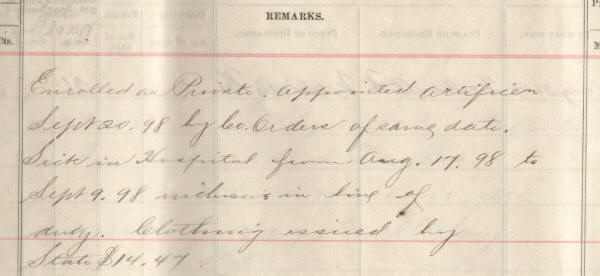 REMARKS.
Cts.
Enrolled as Private. Appointed Artificer
Sept 20. 98 by Co. Orders of same date.
Sick in Hospital from Aug. 17. 98 to
Sept 9. 98 inclusive in line of
duty. Clothing issued by
State $14.47.